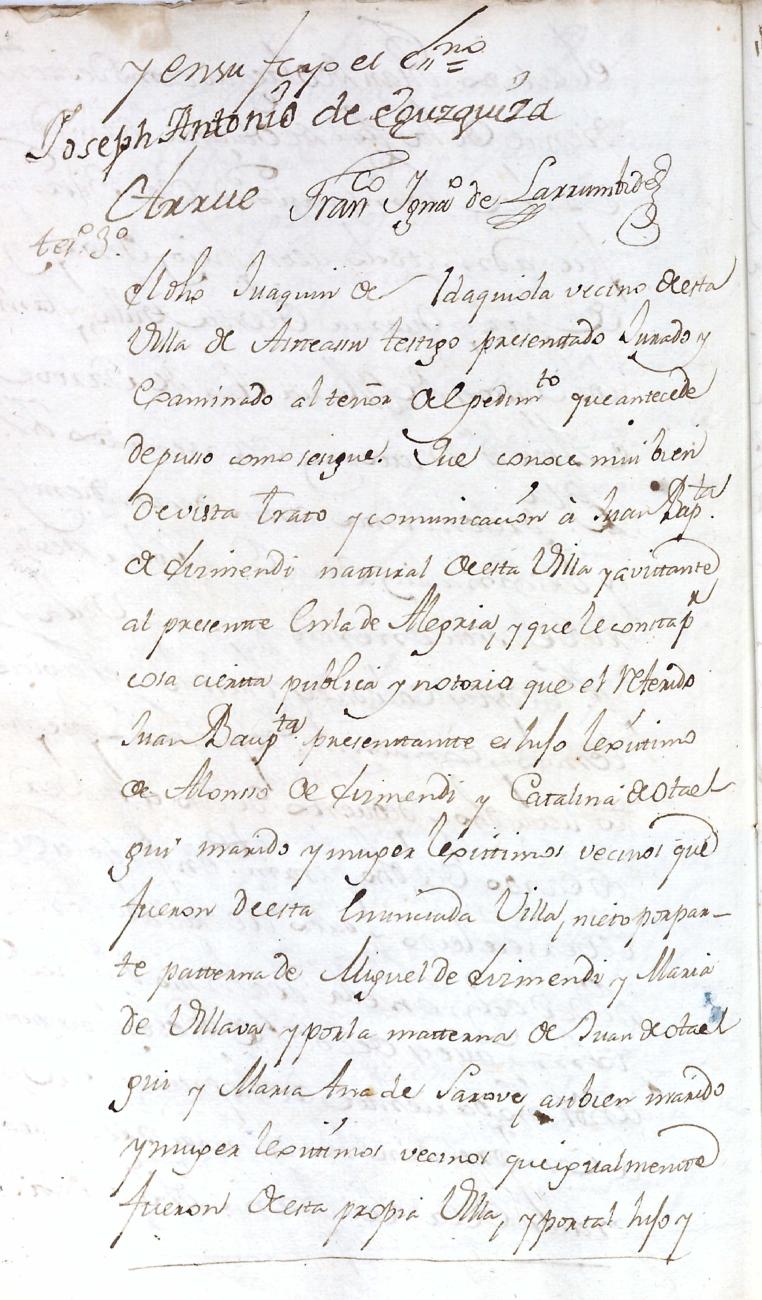 y en su fee yo el ess.no =
Joseph Antonio de Eguzquiza
Arrue Fran.co Ygna.o de Larrumbide
tes.o 3.o
El dho Juaquin de Idaquiola vecino de esta
Villa de Asteassu testigo presentado Jurado y
examinado al tenor del pedim.to que antecede
depusso como se sigue. Que conoce mui bien
de vista trato y comunicación à Juan Bap.ta
de Lizmendi nattural de esta Villa y avittante
al presente en la de Alegria, y que le consta p.r
cosa cierta publica y notoria que el referido
Juan Baup.ta presenttante es hijo lexittimo
de Alonsso de Lizmendi y Catalina de Otae
gui marido y muger lexittimos vecinos que
fueron de esta enunciada Villa, nieto por par-
te patterna de Miguel de Lizmendi y Maria
de Villava y por la matterna de Juan de Otae
gui y Maria Ana de Sarove, asibien marido
y muger lexittimos vecinos que igualmente
fueron de esta propia Villa, y por tal hijo y